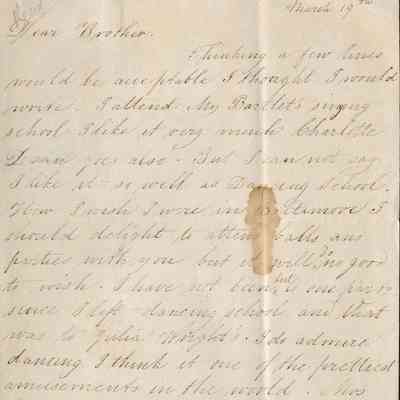 March 19th
Dear Brother.
Thinking a few lines
would be acceptable I thought I would
write. I attend Mr Bartlet's singing
school I like it very much Charlotte
Dean goes also. But I can not say
I like it so well as Dancing School.
How I wish I were in Baltimore I
should delight to attend balls and
parties with you but it will "no good
to wish. I have not been but to one party
since I left dancing school and that
was to Julia Wright's. I do admire
dancing I think it one of the prettiest
amusements in the world. Mrs